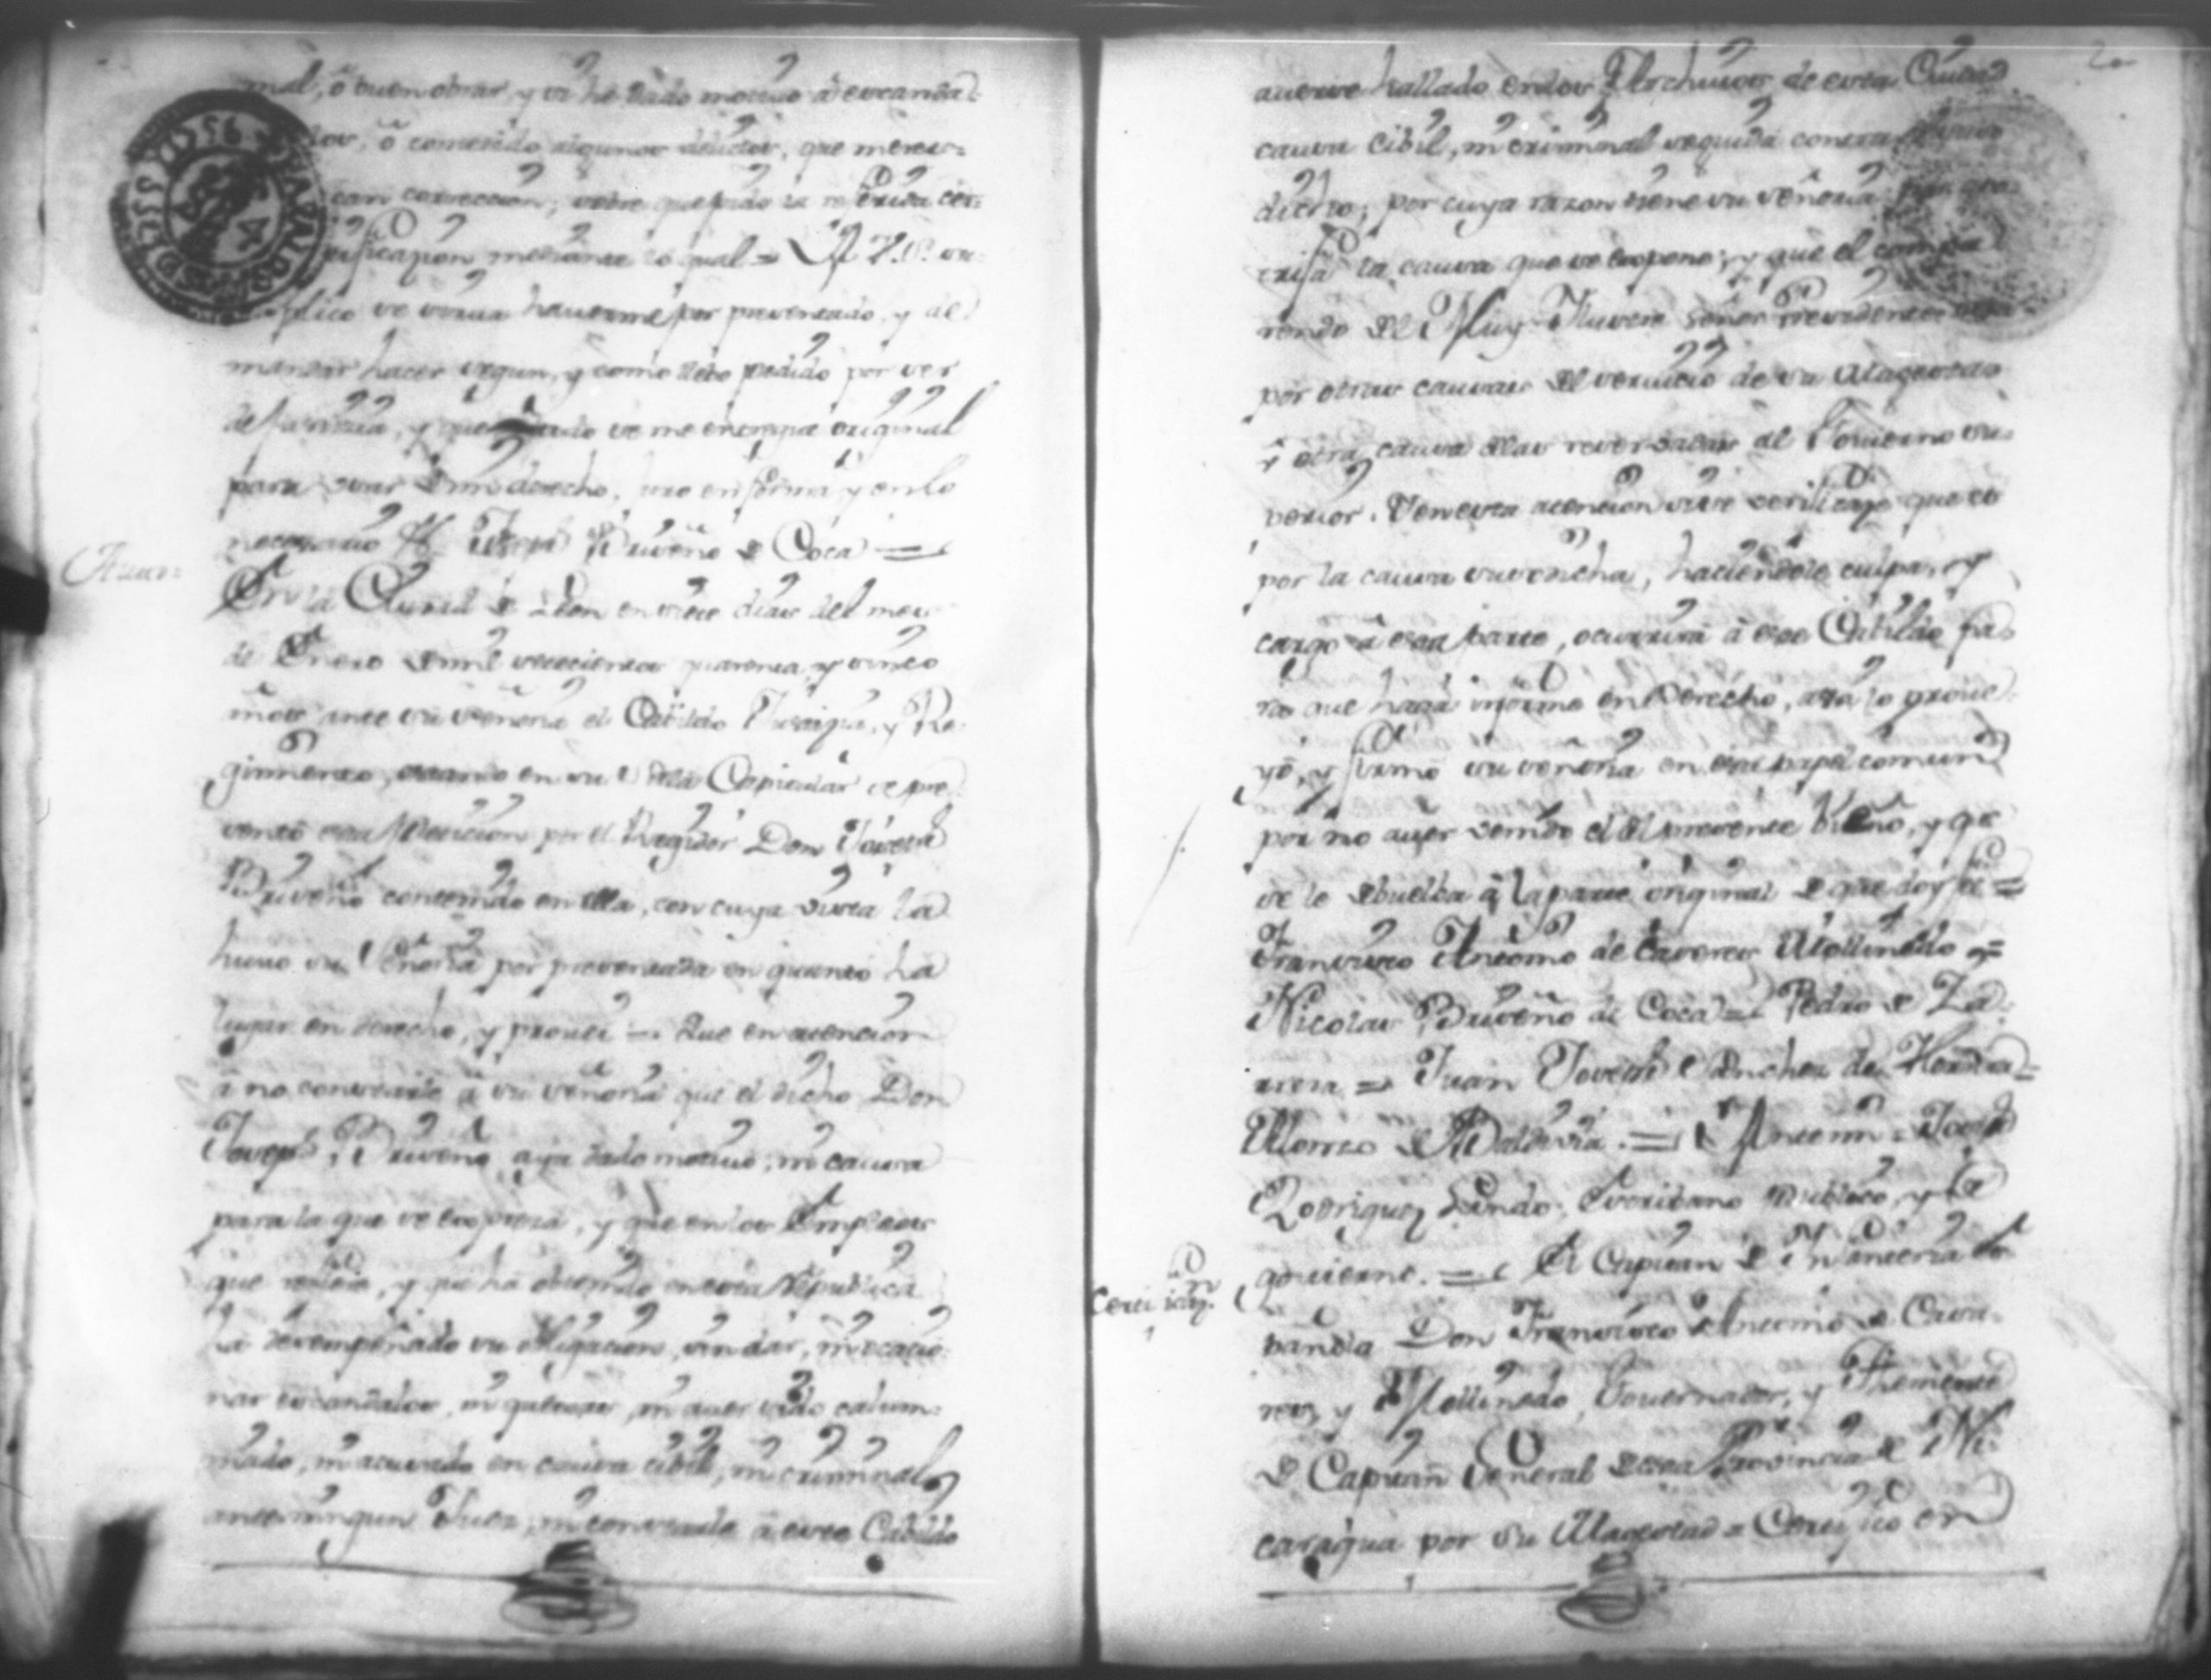 mal, ô buen obrar, y si he dado motivo â escandal-
los, ô cometido algunos delictos, que meres-
can correccion; sobre que pido la referida cer-
tificazion mediante lo qual = A V.S. su-
plico se sirva hauerme por presentado, y de
mandar hacer segun, y como llebo pedido por ser
de justicia, y que se me entregue original
para usar de mi derecho, juro en forma y en lo
necessario &. Joseph Briseño de Coca =
Auto
En la Ciudad de Leon en siete dias del mes
de Enero de mil setecientos quarenta, y cinco
años ante su señoria el Cabildo Justizia, y Re-
gimiento, estando en su Sala Capitular se pre-
sentó esta Peticion por el Regidor Don Joseph
Briseño contenido en ella, con cuya vista la
huuo su Señoria por presentada en quanto ha
lugar en derecho, y proueí = Que en atencion
â no constarle â su señoria que el dicho Don
Joseph Briseño aya dado motiuo, ni causa
para la que se expresa, y que en los Empleos
que refiere, y que ha obtenido en esta Republica
ha desempeñado su obligacion, sin dar, ni ocacio-
nar escandalos, ni quexas, ni auer sido calum-
niado, ni acusado en causa cibil, ni criminal
ante ningun Juez, ni constarle â este Cabildo
auerse hallado en los Archiuos de esta Ciudad
causa cibil, ni criminal seguida contra
dicho; por cuya razon tiene su señoria
la causa que se expone; y que el
rendo del Muy Ilustre Señor Presidente
por otras causas del seruicio de su Magestad
û otra causa de las reservadas al Gouierno su-
perior. Y en esta atencion si se verificare que es
por la causa susodicha, haciendole culpa, y
cargo â esta parte, ocurrirá â este Cabildo pa-
ra que haga informe en derecho, assi lo proue-
yó, y firmó su señoria en este papel comun
por no auer venido el del presente bienio, y qe.
se le debuelba â la parte original de que doy fe =
Francisco Antonio de Caseres Mollinedo =
Nicolas Briseño de Coca = Pedro de La-
rrera = Juan Joseph Sanches de Herrera =
Alonso de Valdivia. = Ante mi = Joseph
Rodriguez Lindo, Escribano Publico, y de
gouierno. =
Certificazn.
El Capitan de Infanteria es-
pañola Don Francisco Antonio de Case-
res, y Mollinedo, Gouernador, y Theniente
de Capitan General de esta Provincia de Ni-
caragua por Su Magestad = Certifico en